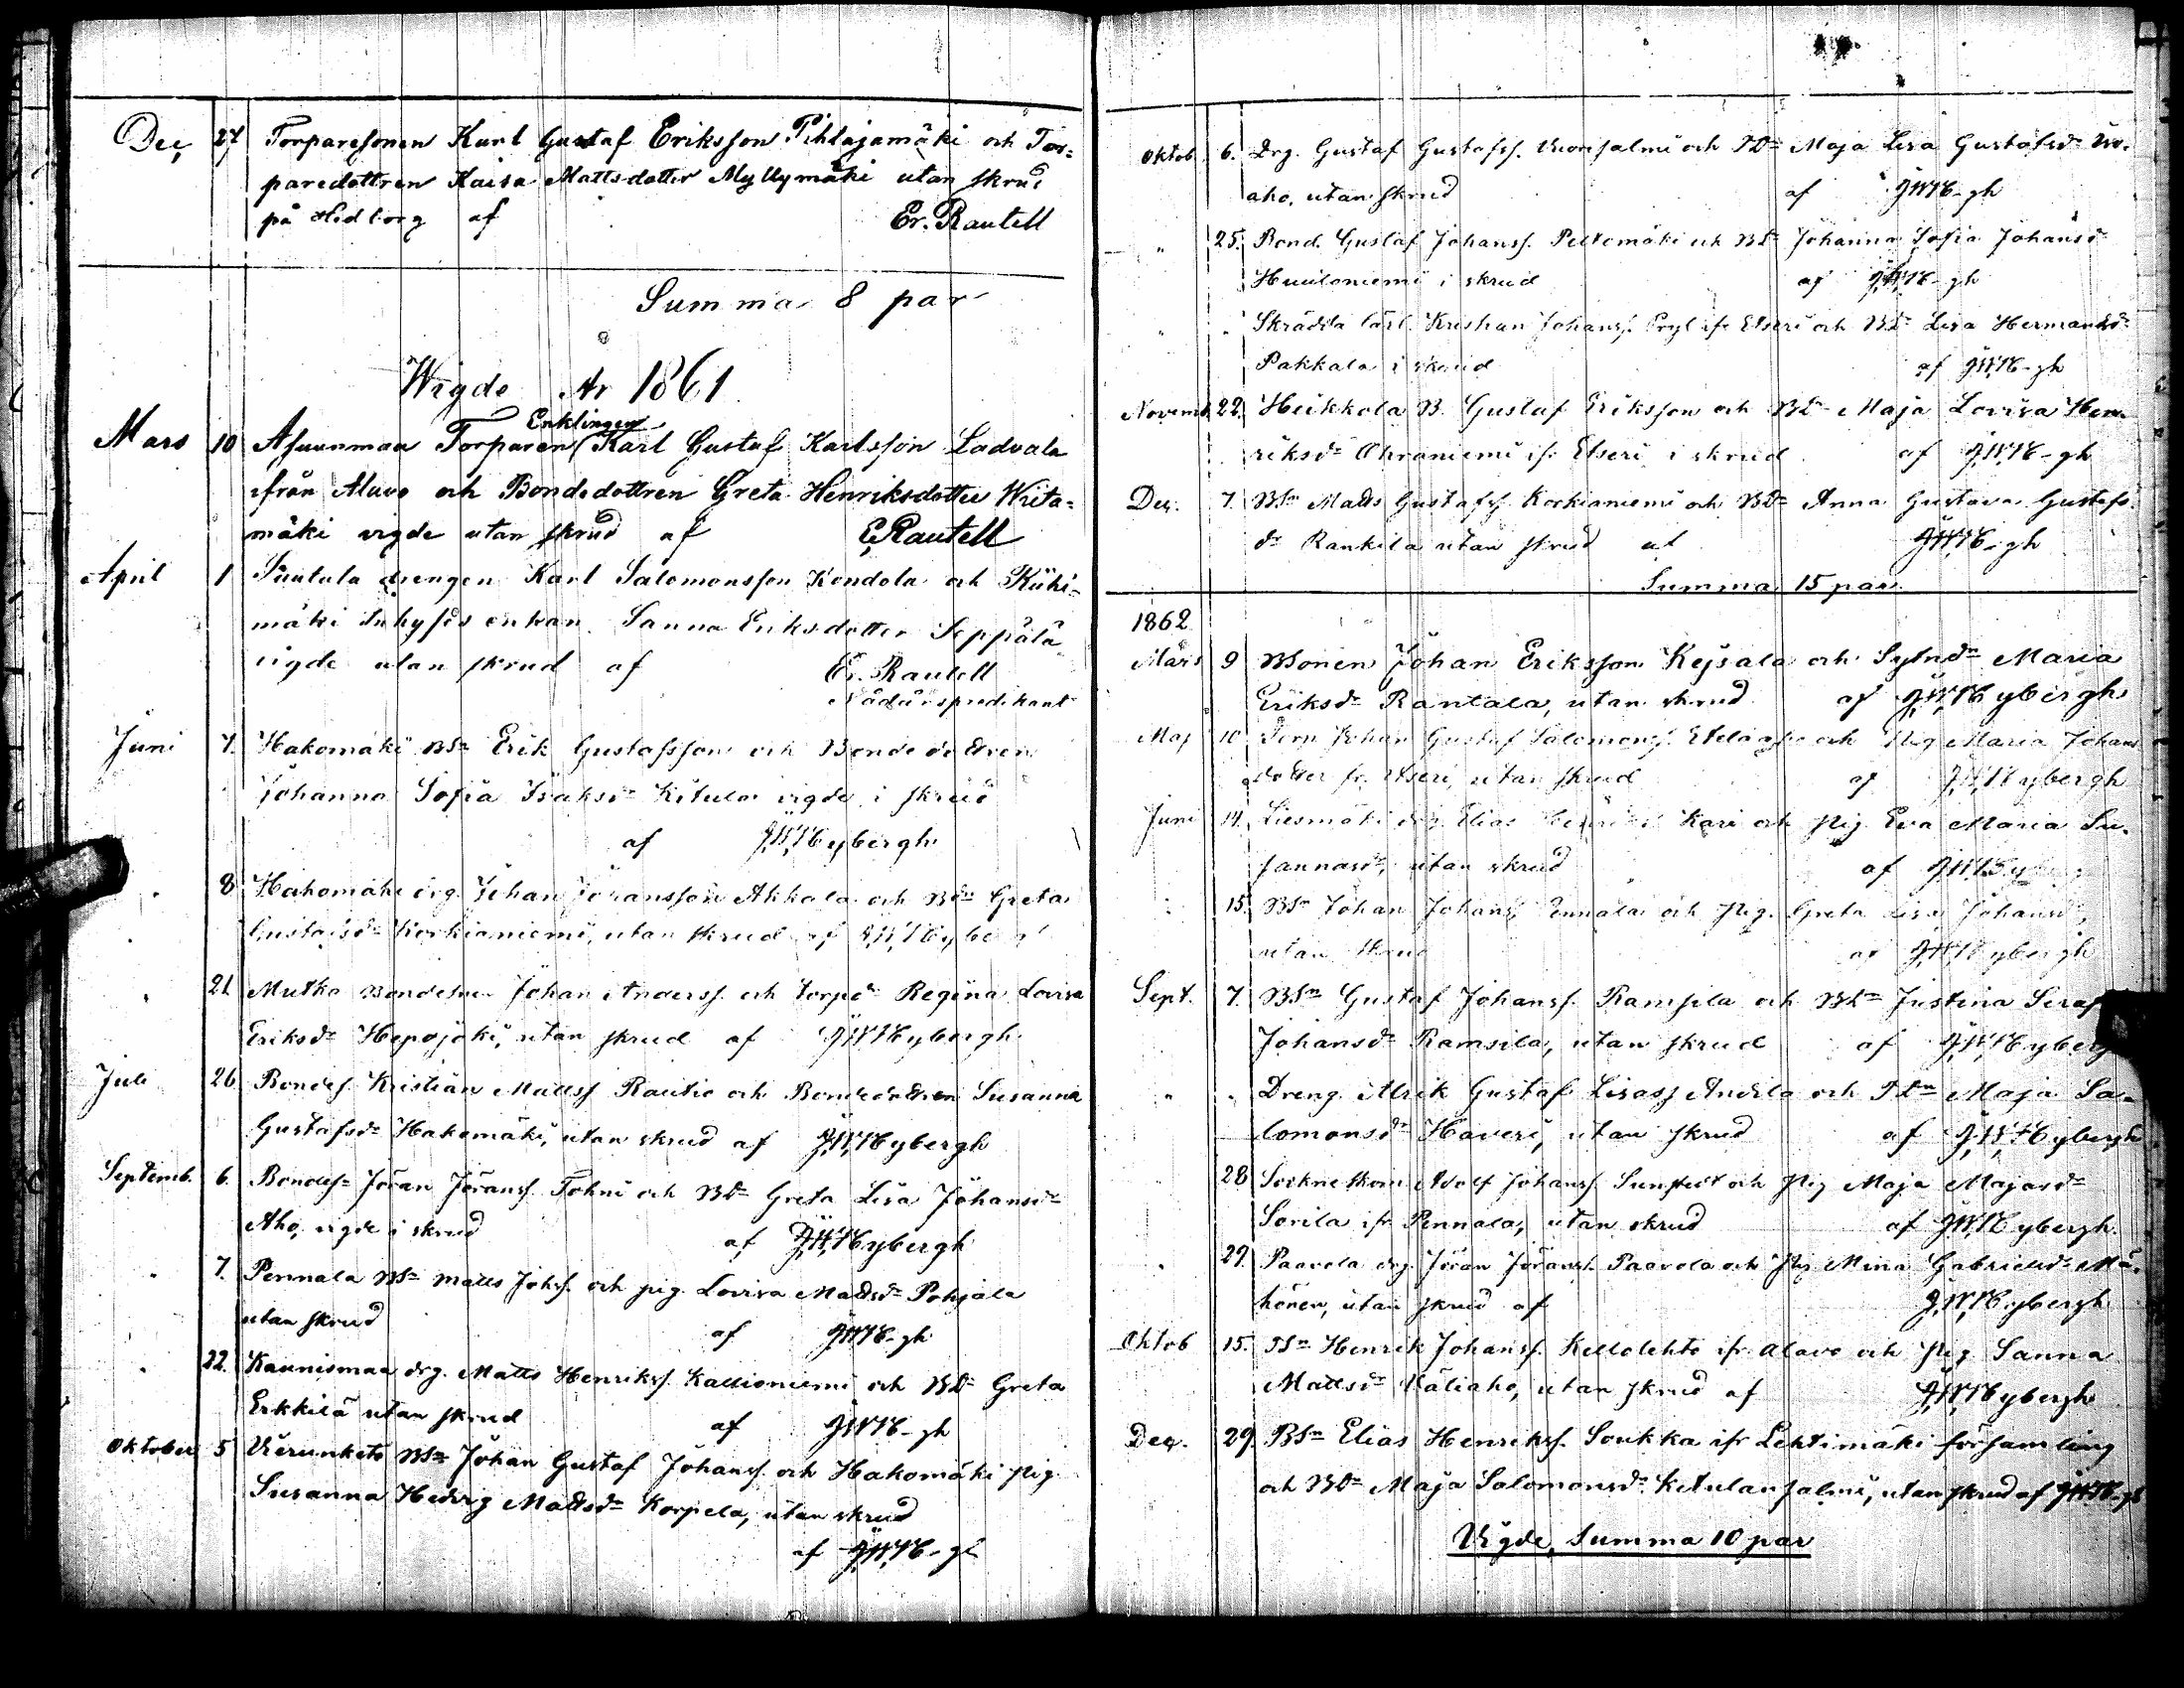 Dec 27 Torparesonen Karl Gustaf Eriksson Pihlajamäki och Tor=
paredottren Kaisa Mattsdotter Myllymäki utan skrud
på Hedborg af Er. Rautell
Summa 8 par
Wigde År 1861
Enklingen
Mars 10 Asunmaa Torparen Karl Gustaf Karlsson Ladvala
ifrån Alavo och Bondedottren Greta Henriksdotter Wiita=
mäki vigde utan skrud af E. Rautell
April 1 drengen Karl Salomonsson Kondola och
mäki Inhyses enkan Sanna Eriksdotter Seppälä
vigde utan skrud af Er. Rautell
Nådårspredikant
Juni 7. Hakomäki Bsn Erik Gustafsson och Bondedottren
Johanna Sofia Isaksdr Kitula vigde i skrud
af J.W. Nybergh
" 8 Hakomäki drg. Johan Johansson Akkola och Bdn Greta
Gustafsdr Korkianiemi, utan skrud af J.W. Nybergh
" 21 Mutka Bondeson Johan Anderss. och torpdr Regina Lovisa
Eriksdr Hepojoki, utan skrud af J.W. Nybergh
Juli 26 Bondes. Kristian Mattss Rautio och Bondedottren Susanna
Gustafsdr Hakomäki, utan skrud af J.W. Nybergh
Septemb. 6. Bondes= Jöran Jöranss. Tohni och Bdn Greta Lisa Johansdr
Aho, vigde i skrud af J.W. Nybergh
" 7. Pennala Bsn Matts Johss. och pig. Lovisa Mattsdr Pohjala
utan skrud af J.W.N-gh
" 22. Kaunismaa drg. Matts Henrikss. Kallioniemi och Bdn Greta
Erkkilä utan skrud af J.W.N-gh
Oktober 5 Bsn Johan Gustaf Johanss. och Hakomäki pig.
Susanna Hedvig Mattsdr Korpela, utan skrud
af J.W.N-gh
Oktob. 6. Drg. Gustaf Gustafss. Vuorsalmi och Tdn Maja Lisa Gustafsdr
aho, utan skrud af J.W.N-gh
" 25. Bond. Gustaf Johanss. Peltomäki och Bdn Johanna Sofia Johansdr
i skrud af J.W.N-gh
" " Skräddarlärl. Kristian Johanss. ifr Etseri och Bdn Lisa Hermansdr
Pakkala i skrud af J.W.N-gh
Novemb. 22. Heikkola B. Gustaf Eriksson och Bdn Maja Lovisa Hen=
riksdr Ohraniemi ifr Etseri i skrud af J.W.N-gh
Dec. 7. Bsn Matts Gustafss. Korkianiemi och Bdn Anna Gustava Gustafs=
dr Rankila utan skrud af J.W.N-gh
Summa 15 par
1862
Mars 9 Bsonen Johan Eriksson Kejsala och Sytndr Maria
Eriksdr Rantala, utan skrud af J.W. Nybergh
Maj 10 Johan Gustaf Salomonss. och Pig Maria Johans
dotter fr. Etseri, utan skrud af J.W. Nybergh
Juni 14. Liesmäki drg. Elias Kari och Pig. Eva Maria Su=
sannasdr, utan skrud af J.W. Nybergh
" 15. Bsn Johan Johanss. Pennala och Pig. Greta Lisa Johansdr,
utan skrud af J.W. Nybergh
Sept. 7. Bsn Gustaf Johanss. Ramsila och Bdn Justina Seraf
Johansdr Ramsila, utan skrud af J.W. Nybergh
" " Dreng Alrik Gustaf Lisass Andila och Tdn Maja Sa=
lomonsdr Haveri, utan skrud af J.W. Nybergh
28 Adolf Johanss. och Pig Maja Majasdr
Sorila ifr Pennala, utan skrud af J.W. Nybergh.
" 29. Paavola drg. Jöran Jöranss. Paavola och Pig Mina Gabrielsdr Mä=
hönen, utan skrud af J.W. Nybergh
Oktob 15. Tsn Henrik Johanss. Kellolehto ifr Alavo och Pig Sanna
Mattsdr Väliaho, utan skrud af J.W. Nybergh
Dec. 29. Bsn Elias Henrikss. Soukka ifr Lehtimäki församling
och Bdn Maja Salomonsdr Ketulansalmi, utan skrud af J.W.N-gh
Vigde, Summa 10 par